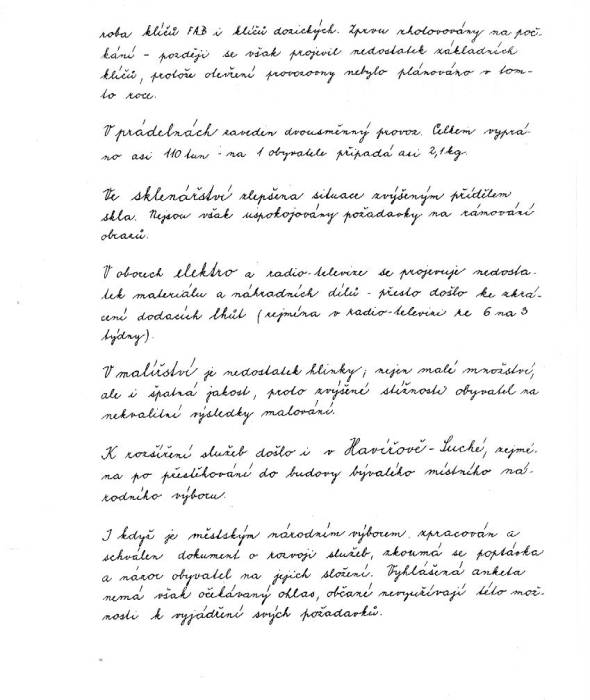 roba klíčů FAB i klíčů dozických. Zprvu zhotovovány na poč-
kání - později se však projevil nedostatek základních
klíčů, protože otevření provozovny nebylo plánováno v tom-
to roce.
V prádelnách zaveden dvousměnný provoz. Celkem vyprá-
no asi 110 tun - na 1 obyvatele připadá asi 2,1 kg.
Ve sklenářství zlepšena situace zvýšeným přídělem
skla. Nejsou však uspokojovány požadavky na rámování
obrazů.
V oborech elektro a radio-televize se projevuje nedosta-
tek materiálu a náhradních dílů - přesto došlo ke zkrá-
cení dodacích lhůt (zejména v radio-televizi ze 6 na 3
týdny).
V malířství je nedostatek hlinky; nejen malé množství,
ale i špatná jakost, proto zvýšené stížnosti obyvatel na
nekvalitní výsledky malování.
K rozšíření služeb došlo i v Havířově-Suché, zejmé-
na po přestěhování do budovy bývalého místního ná-
rodního výboru.
I když je městským národním výborem zpracován a
schválen dokument o rozvoji služeb, zkoumá se poptávka
a názor obyvatel na jejich složení. Vyhlášená anketa
nemá však očekávaný ohlas, občané nevyužívají této mož-
nosti k vyjádření svých požadavků.